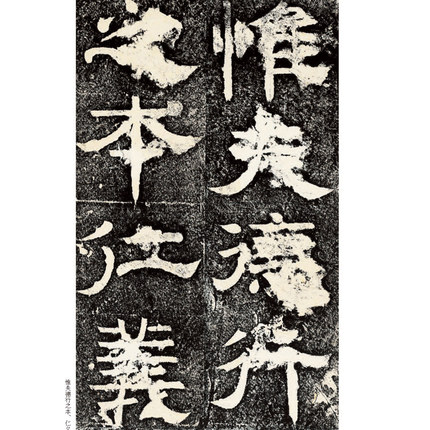 惟夫德行
之本仁義
惟夫德行之本，仁